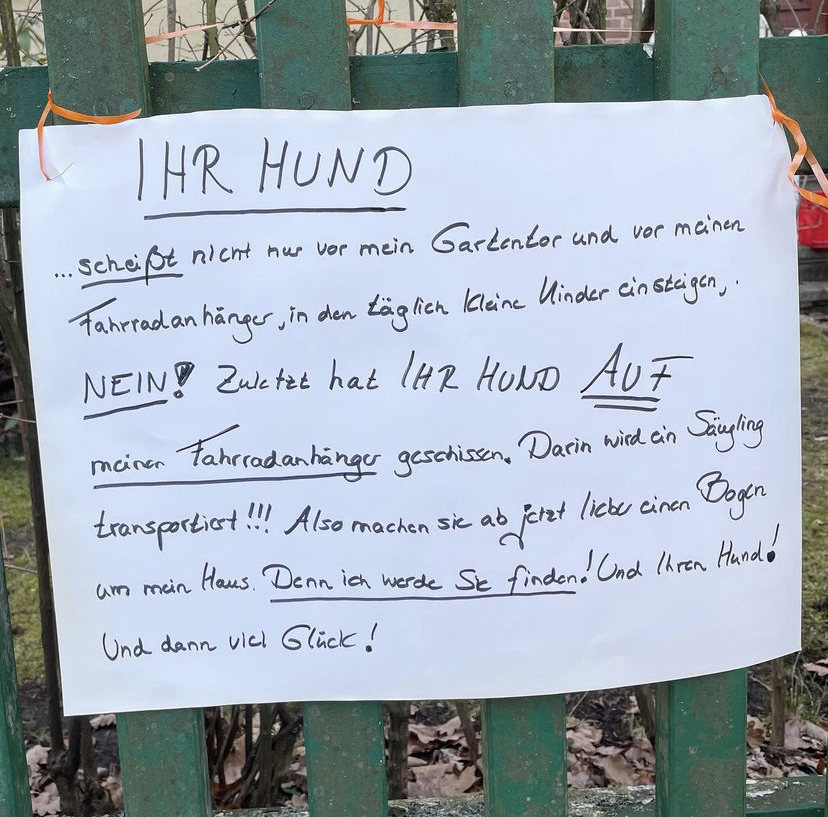 IHR HUND
...scheißt nicht nur vor mein Gartentor und vor meinen
Fahrradanhänger, in den täglich kleine Kinder einsteigen,.
NEIN! Zuletzt hat IHR HUND AUF
meinen Fahrradanhänger geschissen. Darin wird ein Säugling
transportiert!!! Also machen sie ab jetzt lieber einen Bogen
um mein Haus. Denn ich werde Sie finden! Und Ihren Hund!
Und dann viel Glück!